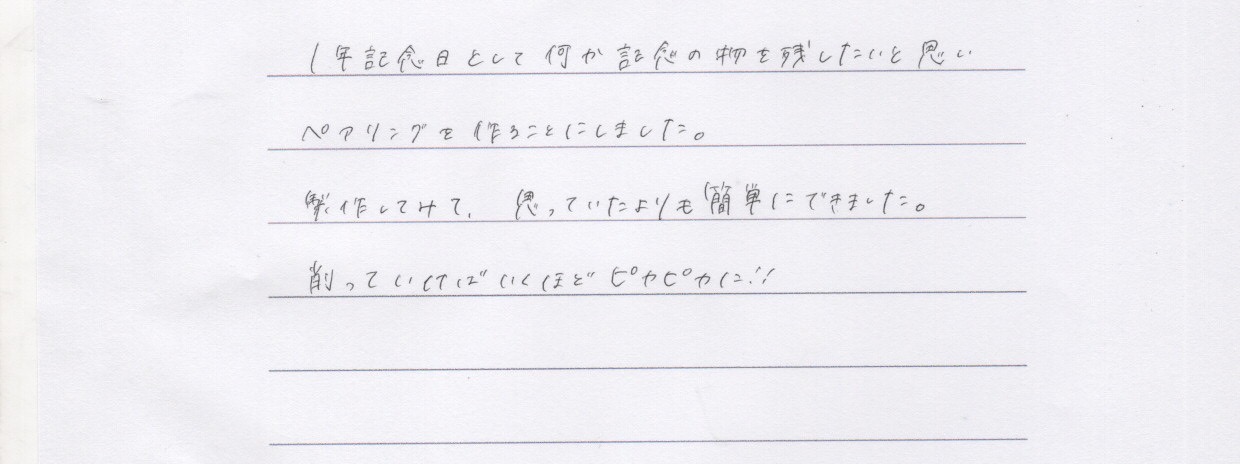 1年記念日として何か記念の物を残したいと思い
ペアリングを作ることにしました。
製作してみて、思っていたよりも簡単にできました。
削っていけばいくほどピカピカに!!